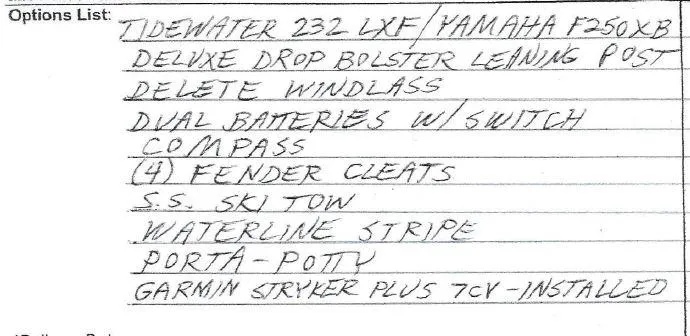 Options List:
TIDEWATER 232 LXF/YAMAHA F250XB
DELUXE DROP BOLSTER LEANING POST
DELETE WINDLASS
DUAL BATTERIES W/ SWITCH
COMPASS
(4) FENDER CLEATS
S.S. SKI TOW
WATERLINE STRIPE
PORTA-POTTY
GARMIN STRYKER PLUS 7CV-INSTALLED